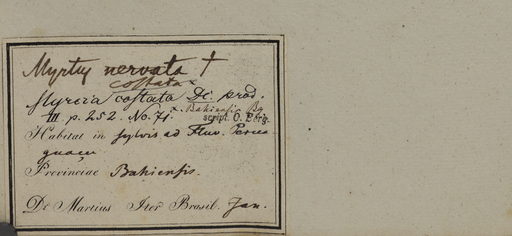 Myrtus nervata †
costata
Myrcia costata DC. prod.
α. Bahiensis Bg
III. p. 252. No. 71. script. O. Berg.
Habitat in sylvis ad Fluv. Perua
guaçu
Provinciae Bahiensis.
Dr Martius Iter Brasil. Jan.